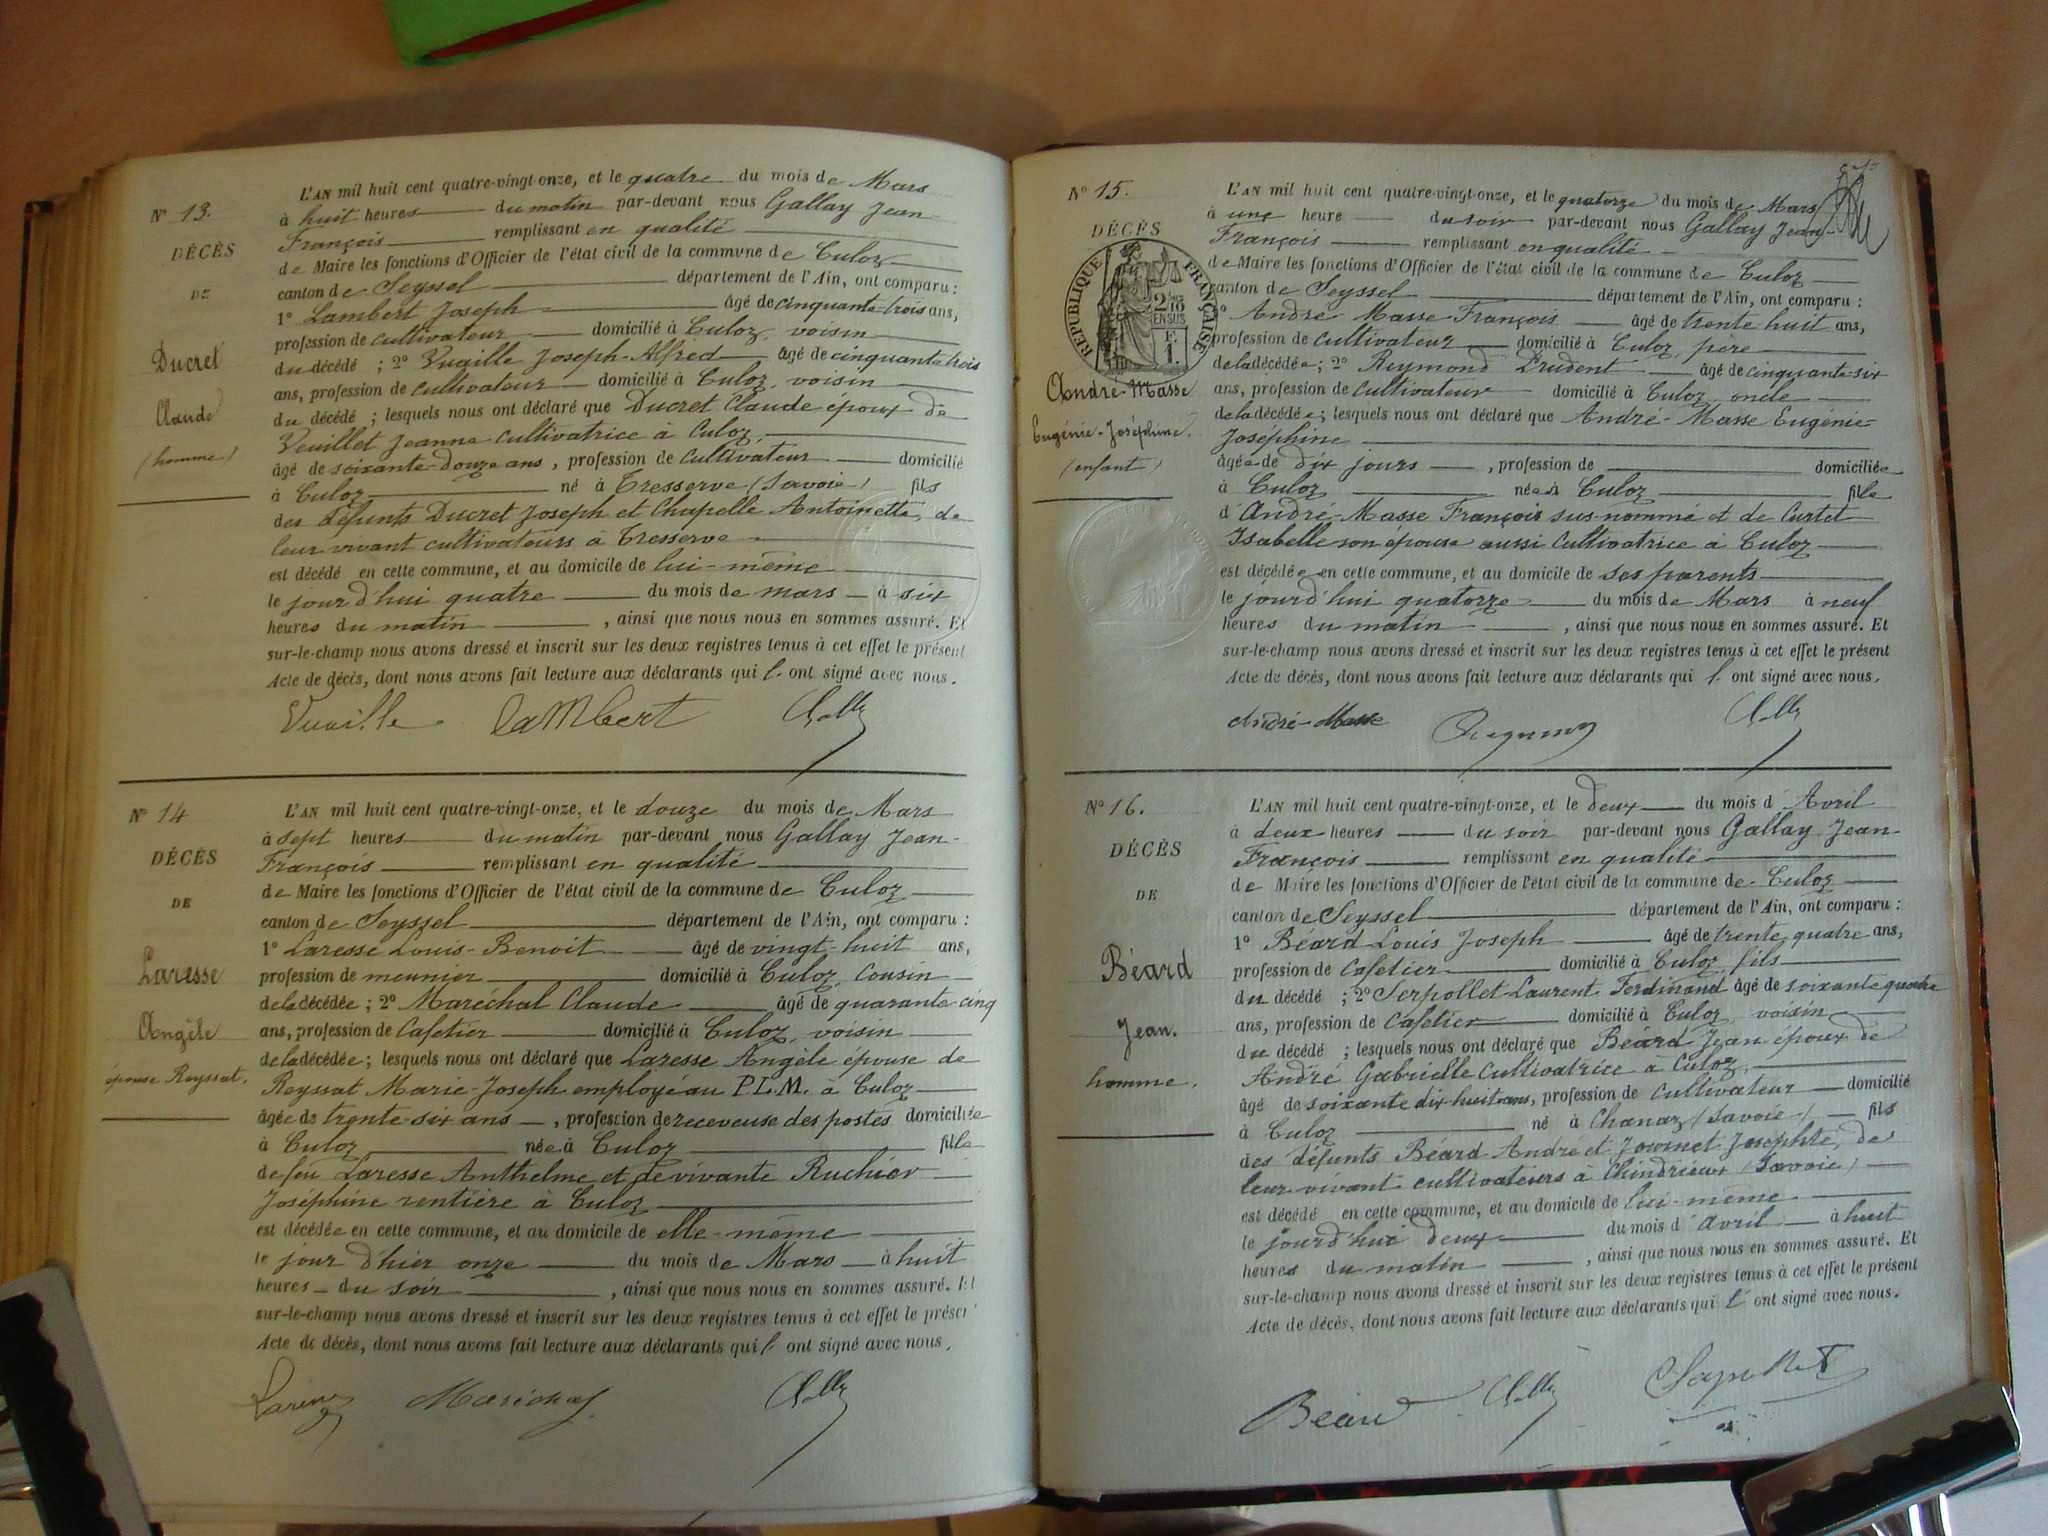 N° 13.
DÉCÈS
DE
Ducret
Claude
(homme)
L'AN mil huit cent quatre-vingt-onze, et le quatre du mois de Mars
à huit heures du matin par-devant nous Gallay Jean-
François remplissant en qualité
de Maire les fonctions d'Officier de l'état civil de la commune de Culoz
canton de Seyssel département de l'Ain, ont comparu :
1° Lambert Joseph âgé de cinquante-trois ans,
profession de cultivateur domicilié à Culoz, voisin
du décédé ; 2° Vuaille Joseph-Alfred âgé de cinquante trois
ans, profession de cultivateur domicilié à Culoz, voisin
du décédé ; lesquels nous ont déclaré que Ducret Claude époux de
Veuillet Jeanne cultivatrice à Culoz,
âgé de soixante-douze ans, profession de cultivateur domicilié
à Culoz né à Tresserve (Savoie) fils
des défunts Ducret Joseph et Chapelle Antoinette, de
leur vivant cultivateurs à Tresserve
est décédé en cette commune, et au domicile de lui-même
le jourd'hui quatre du mois de mars à six
heures du matin , ainsi que nous nous en sommes assuré. Et
sur-le-champ nous avons dressé et inscrit sur les deux registres tenus à cet effet le présent
Acte de décès, dont nous avons fait lecture aux déclarants qui l' ont signé avec nous.
Vuaille Lambert
N° 14
DÉCÈS
DE
Laresse
Angèle
épouse Reyssat.
L'AN mil huit cent quatre-vingt-onze, et le douze du mois de Mars
à sept heures du matin par-devant nous Gallay Jean-
François remplissant en qualité
de Maire les fonctions d'Officier de l'état civil de la commune de Culoz
canton de Seyssel département de l'Ain, ont comparu :
1° Laresse Louis-Benoit âgé de vingt-huit ans,
profession de meunier domicilié à Culoz, cousin
de la décédée ; 2° Maréchal Claude âgé de quarante cinq
ans, profession de Cafetier domicilié à Culoz, voisin
de la décédée ; lesquels nous ont déclaré que Laresse Angèle épouse de
Reyssat Marie-Joseph employé au P.L.M. à Culoz
âgée de trente-six ans , profession de receveuse des postes domiciliée
à Culoz née à Culoz fille
de feu Laresse Anthelme et de vivante Ruchier
Joséphine rentière à Culoz
est décédée en cette commune, et au domicile de elle-même
le jour d'hier onze du mois de Mars à huit
heures du soir , ainsi que nous nous en sommes assuré. Et
sur-le-champ nous avons dressé et inscrit sur les deux registres tenus à cet effet le présent
Acte de décès, dont nous avons fait lecture aux déclarants qui l' ont signé avec nous.
Maréchal
N° 15.
DÉCÈS
RÉPUBLIQUE FRANÇAISE
2/10 EN SUS
F. 1.
André-Masse
Eugénie-Joséphine.
(enfant)
L'AN mil huit cent quatre-vingt-onze, et le quatorze du mois de Mars
à une heure du soir par-devant nous Gallay Jean-
François remplissant en qualité
de Maire les fonctions d'Officier de l'état civil de la commune de Culoz
canton de Seyssel département de l'Ain, ont comparu :
1° André Masse François âgé de trente huit ans,
profession de cultivateur domicilié à Culoz, père
de la décédée ; 2° Reymond Prudent âgé de cinquante-six
ans, profession de cultivateur domicilié à Culoz oncle
de la décédée ; lesquels nous ont déclaré que André-Masse Eugénie-
Joséphine
âgée de dix jours , profession de domiciliée
à Culoz née à Culoz fille
d'André-Masse François sus-nommé et de Curtet
Isabelle son épouse aussi cultivatrice à Culoz
est décédée en cette commune, et au domicile de ses parents
le jourd'hui quatorze du mois de Mars à neuf
heures du matin , ainsi que nous nous en sommes assuré. Et
sur-le-champ nous avons dressé et inscrit sur les deux registres tenus à cet effet le présent
Acte de décès, dont nous avons fait lecture aux déclarants qui l' ont signé avec nous.
André-Masse
N° 16.
DÉCÈS
DE
Béard
Jean.
homme.
L'AN mil huit cent quatre-vingt-onze, et le deux du mois d'Avril
à deux heures du soir par-devant nous Gallay Jean-
François remplissant en qualité
de Maire les fonctions d'Officier de l'état civil de la commune de Culoz
canton de Seyssel département de l'Ain, ont comparu :
1° Béard Louis Joseph âgé de trente quatre ans,
profession de Cafetier domicilié à Culoz, fils
du décédé ; 2° Serpollet Laurent Ferdinand âgé de soixante quatre
ans, profession de Cafetier domicilié à Culoz, voisin
du décédé ; lesquels nous ont déclaré que Béard Jean époux de
André Gabrielle cultivatrice à Culoz,
âgé de soixante dix-huit ans, profession de cultivateur domicilié
à Culoz né à Chanaz (Savoie) fils
des défunts Béard André et Journet Josephte, de
leur vivant cultivateurs à Chindrieux (Savoie)
est décédé en cette commune, et au domicile de lui-même
le jourd'hui deux du mois d'avril à huit
heures du matin , ainsi que nous nous en sommes assuré. Et
sur-le-champ nous avons dressé et inscrit sur les deux registres tenus à cet effet le présent
Acte de décès, dont nous avons fait lecture aux déclarants qui l' ont signé avec nous.
Béard